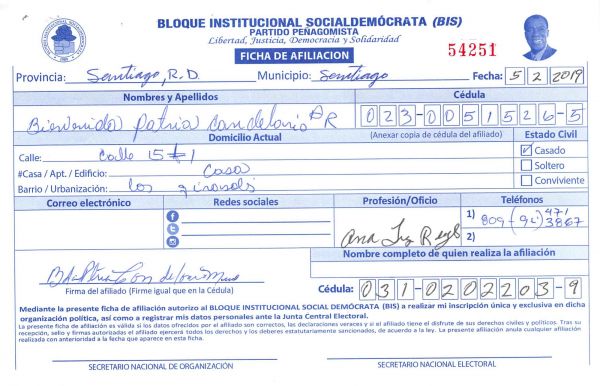 BLOQUE INSTITUCIONAL SOCIALDEMÓCRATA (BIS)
PARTIDO PEÑAGOMISTA
Libertad, Justicia, Democracia y Solidaridad
FICHA DE AFILIACION
54251
Provincia: Santiago, R.D. Municipio: Santiago Fecha: 5 2 2019
Nombres y Apellidos Cédula
Bienvenida Patria Candelario 023-0051526-5
Domicilio Actual (Anexar copia de cédula del afiliado) Estado Civil
Calle: Calle 15 #1 ✓ Casado
#Casa / Apt. / Edificio: Casa Soltero
Barrio / Urbanización: los girasoles Conviviente
Correo electrónico Redes sociales Profesión/Oficio Teléfonos
1) 809 471 3867
2)
Ana
Nombre completo de quien realiza la afiliación
Firma del afiliado (Firme igual que en la Cédula) Cédula: 031-0202203-9
Mediante la presente ficha de afiliación autorizo al BLOQUE INSTITUCIONAL SOCIAL DEMÓCRATA (BIS) a realizar mi inscripción única y exclusiva en dicha
organización política, así como a registrar mis datos personales ante la Junta Central Electoral.
La presente ficha de afiliación es válida si los datos ofrecidos por el afiliado son correctos, las declaraciones veraces y si el afiliado tiene el disfrute de sus derechos civiles y políticos. Tras su
recepción, sello y firmas autorizadas el afiliado ejercerá todos los derechos y los deberes estatutariamente sancionados, de acuerdo a la ley. La presente afiliación anula cualquier afiliación
realizada con anterioridad a la fecha que aparece en esta ficha.
SECRETARIO NACIONAL DE ORGANIZACIÓN SECRETARIO NACIONAL ELECTORAL